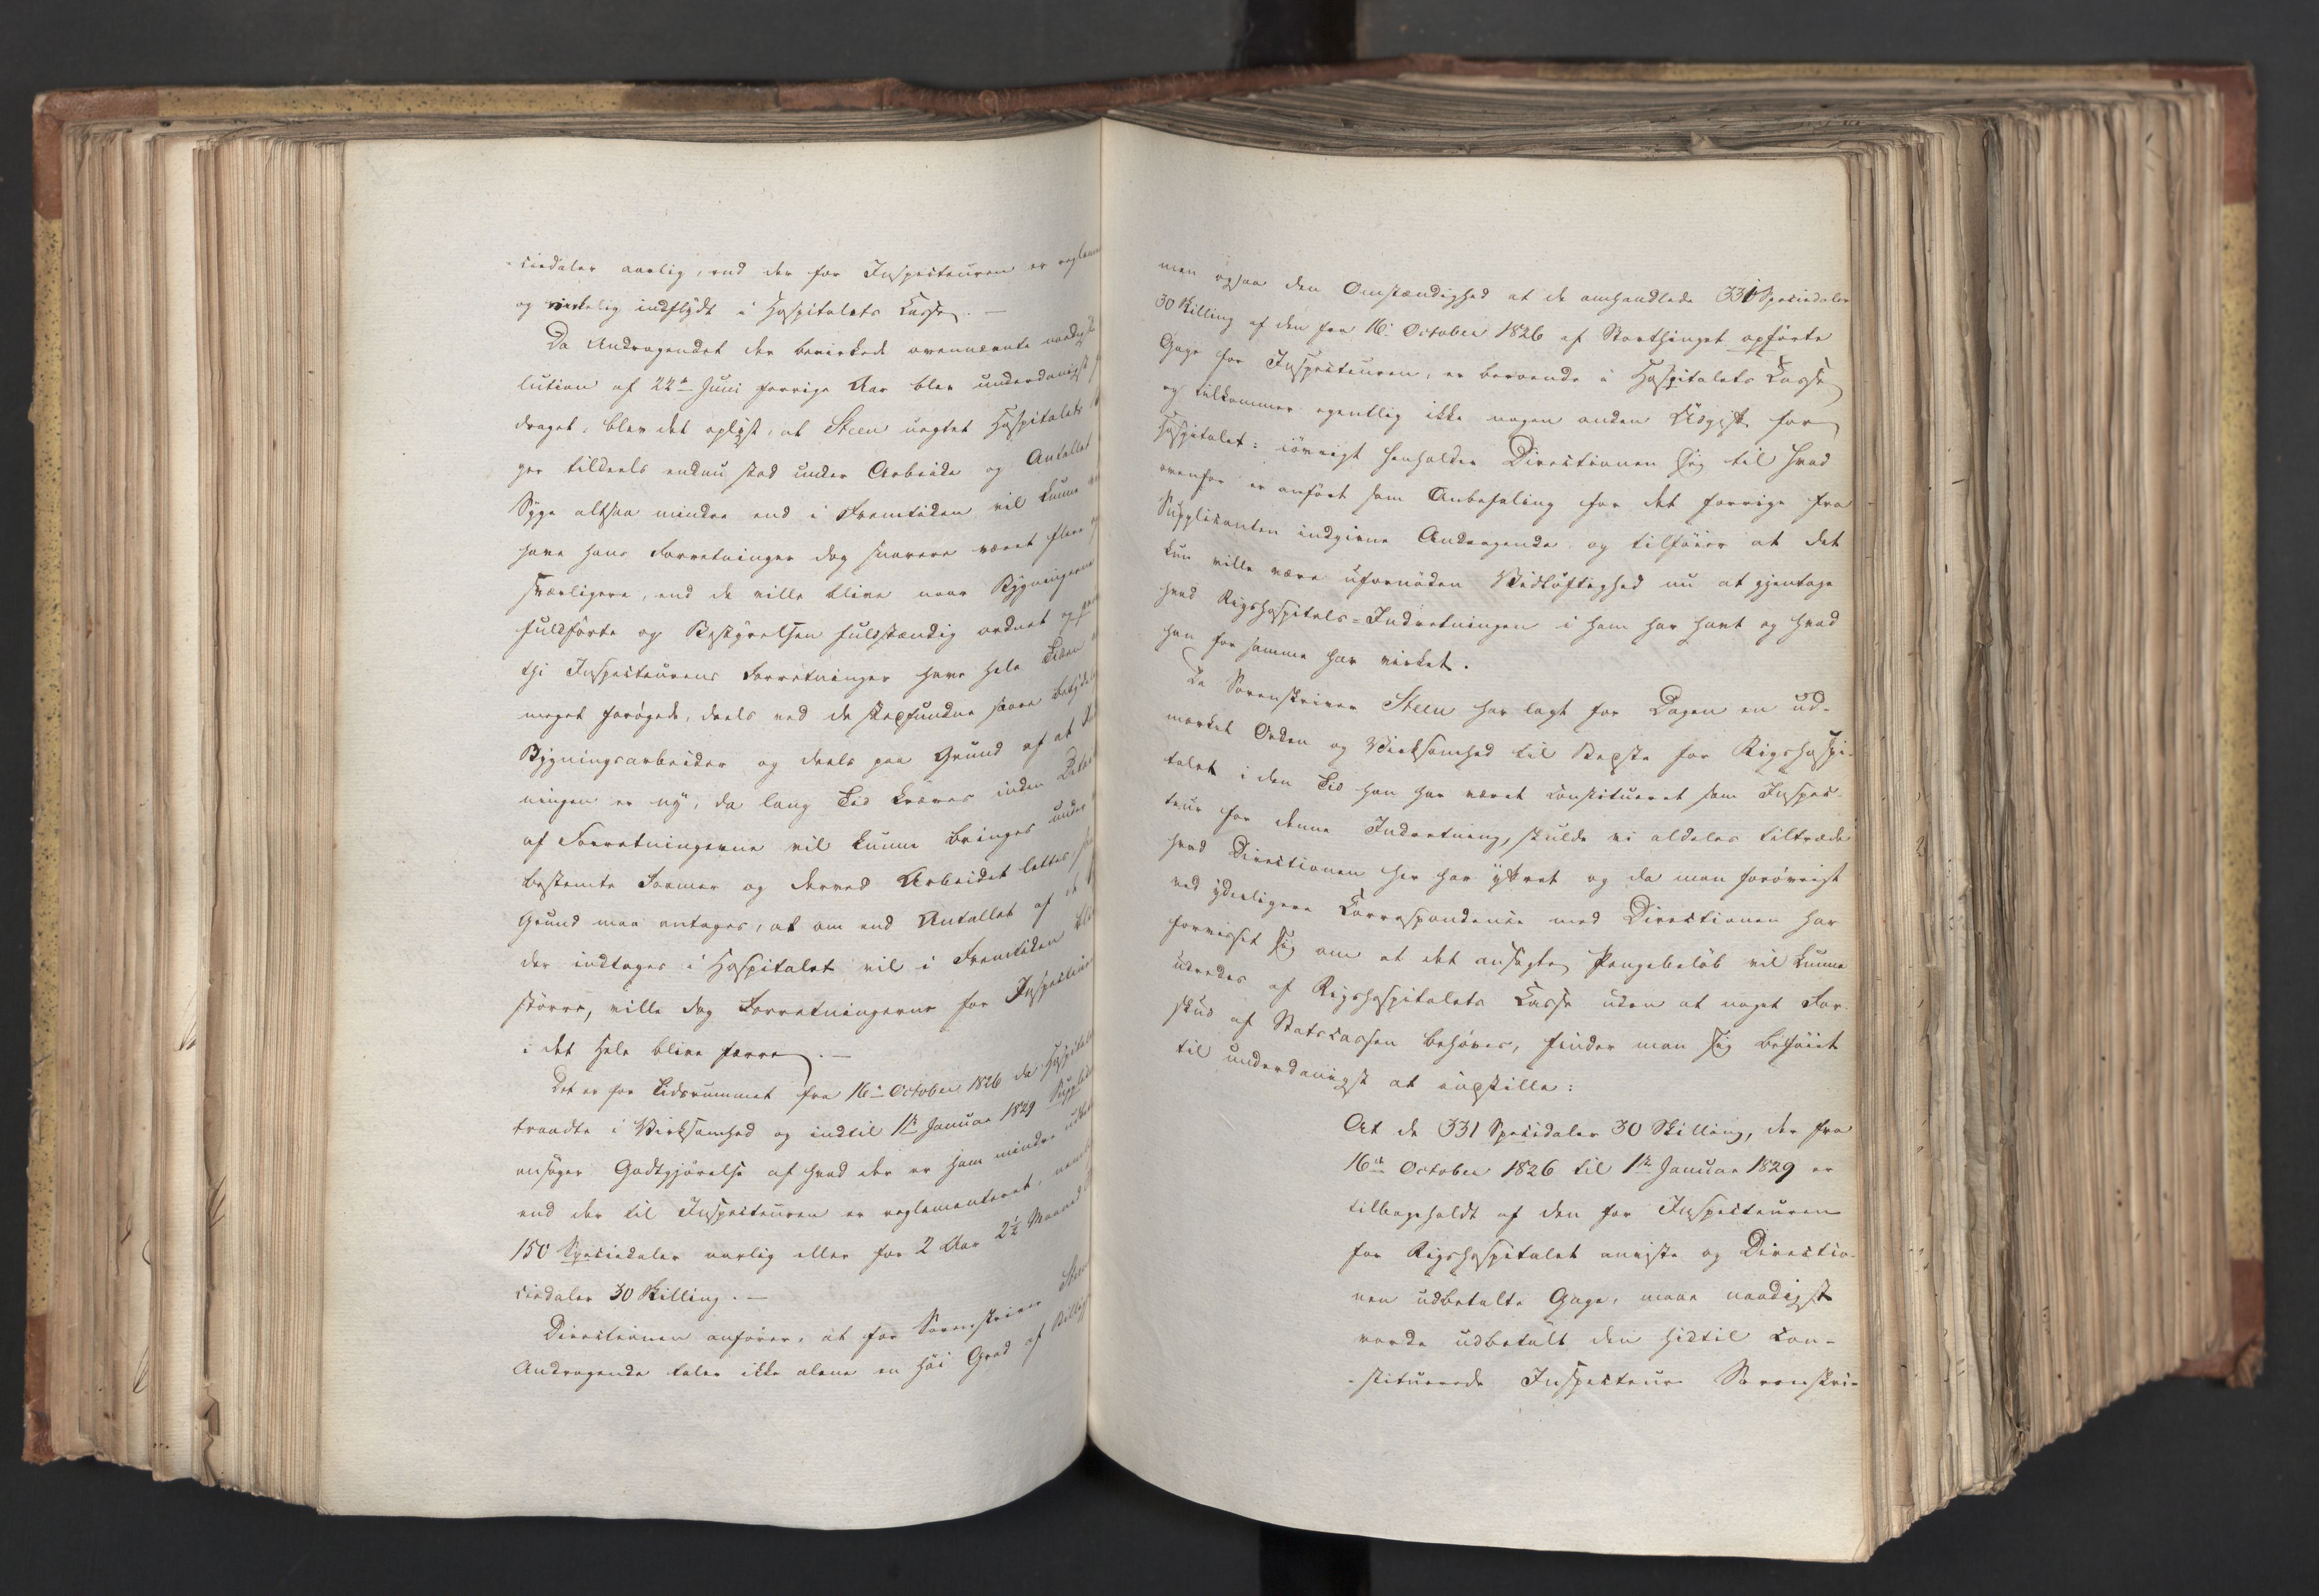 -ciedaler aarlig, end der for Inspecteuren er reglem
og virkelig indflydt i Hospitalets Casse. —
Da Andragendet der bevirkede ovennævnte naadigste
lution af 22de Juni forrige Aar blev underdanigst
draget, blev det oplyst, at Steen uagtet Hospitalets
ger tildeels endnu stod under Arbeide og Antallet
Syge altsaa mindre end i Fremtiden vil kunne
have hans Forretninger dog snarere været flere
særligere, end de ville blive naar Bygningerne
fuldførte og Bestyrelsen fuldstændig ordnet og
thi Inspecteurens Forretninger have hele Tiden
meget forøgede, deels ved de stedfundne store betyde
Bygningsarbeider og deels paa Grund af at
ningen er ny, da lang Tid kræves inden Detail
af Forretningerne vil kunne bringes under
bestemte Former og derved Arbeidet lettes,
Grund maa antages, at om end Antallet af de
der indtages i Hospitalet vil i Fremtiden blive
større, ville dog Forretningerne for Inspecteuren
i det Hele blive færre. —
Det er for Tidsrummet fra 16de October 1826 da Hospitalet
traadte i Virksomhed og indtil 1ste Januar 1829 Supplic
ansøger Godtgjørelse af hvad der er ham mindre udbet
end der til Inspecteuren er reglementeret, neml
150 Speciedaler aarlig eller for 2 Aar 2½ Maaned
ciedaler 30 Skilling. —
Directionen anfører, at for Sorenskriver Steens
Andragende taler ikke alene en høi Grad af Billig
men ogsaa den Omstændighed at de omhandlede 331 Speciedaler
30 Skilling af den fra 16. October 1826 af Storthinget opførte
Gage for Inspecteuren, er beroende i Hospitalets Casse
og tilkommer egentlig ikke nogen anden Udgift for
Hospitalet: iøvrigt henholder Directionen sig til hvad
ovenfor er anført som Anbefaling for det forrige fra
Supplicanten indgivne Andragende og tilføier at det
kun ville være ufornøden Vidtløftighed nu at gjentage
hvad Rigshospitals-Indretningen i ham har havt og hvad
han for samme har virket.
Da Sorenskriver Steen har lagt for Dagen en ud-
mærket Orden og Virksomhed til Bedste for Rigshospi-
talet i den Tid han har været constitueret som Inspec-
teur for denne Indretning, skulde vi aldeles tiltræde
hvad Directionen her har yttret og da man forøvrigt
ved yderligere Correspondence med Directionen har
forvisset sig om at det ansøgte Pengebeløb vil kunne
udredes af Rigshospitalets Casse uden at noget For-
skud af Statscassen behøves, finder man sig beføiet
til underdanigst at indstille:
At de 331 Speciedaler 30 Skilling, der fra
16de October 1826 til 1ste Januar 1829 er
tilbageholdt af den for Inspecteuren
for Rigshospitalet anviste og Directio-
nen udbetalte Gage, maae naadigst
vorde udbetalt den hidtil con-
-stituerede Inspecteur Sorenskri-